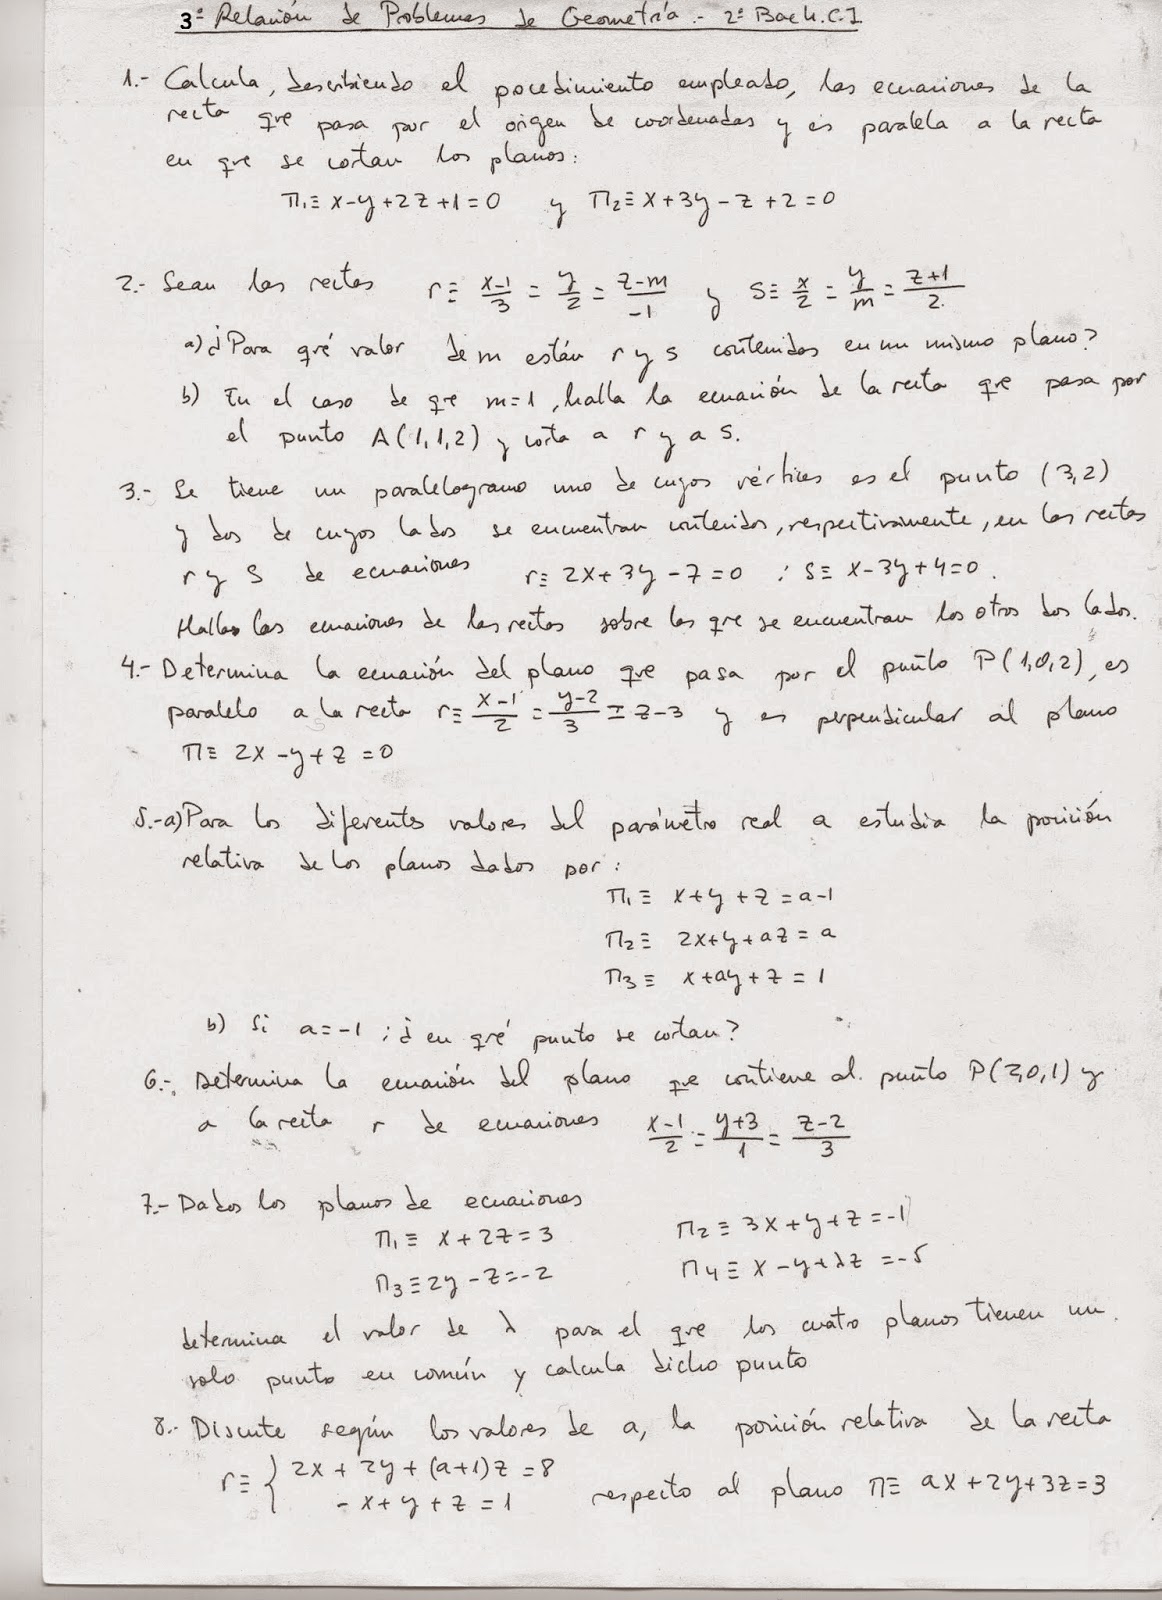 3ª Relación de Problemas de Geometría.- 2º Bach.C.I
1.- Calcula, describiendo el pocedimiento empleado, las ecuaciones de la
recta que pasa por el origen de coordenadas y es paralela a la recta
en que se cortan los planos:
π₁≡ x-y+2z+1=0 y π₂≡ x+3y-z+2=0
2.- Sean las rectas r≡ (x-1)/3 = y/2 = (z-m)/-1 y s≡ x/2 = y/m = (z+1)/2
a) ¿Para qué valor de m están r y s contenidas en un mismo plano?
b) En el caso de que m=1, halla la ecuación de la recta que pasa por
el punto A(1,1,2) y corta a r y a s.
3.- Se tiene un paralelogramo uno de cuyos vértices es el punto (3,2)
y dos de cuyos lados se encuentran contenidos, respectivamente, en las rectas
r y s de ecuaciones r≡ 2x+3y-7=0 ; s≡ x-3y+4=0.
Halla las ecuaciones de las rectas sobre las que se encuentran los otros dos lados.
4.- Determina la ecuación del plano que pasa por el punto P(1,0,2), es
paralelo a la recta r≡ (x-1)/2 = (y-2)/3 = z-3 y es perpendicular al plano
π≡ 2x-y+z=0
5.-a) Para los diferentes valores del parámetro real a estudia la posición
relativa de los planos dados por:
π₁≡ x+y+z=a-1
π₂≡ 2x+y+az=a
π₃≡ x+ay+z=1
b) Si a=-1 ; ¿en qué punto se cortan?
6.- Determina la ecuación del plano que contiene al punto P(2,0,1) y
a la recta r de ecuaciones (x-1)/2 = (y+3)/1 = (z-2)/3
7.- Dados los planos de ecuaciones
π₁≡ x+2z=3 π₂≡ 3x+y+z=-1
π₃≡ 2y-z=-2 π₄≡ x-y+λz=-5
determina el valor de λ para el que los cuatro planos tienen un
solo punto en común y calcula dicho punto
8.- Discute según los valores de a, la posición relativa de la recta
r≡ { 2x+2y+(a+1)z=8
-x+y+z=1 respecto al plano π≡ ax+2y+3z=3